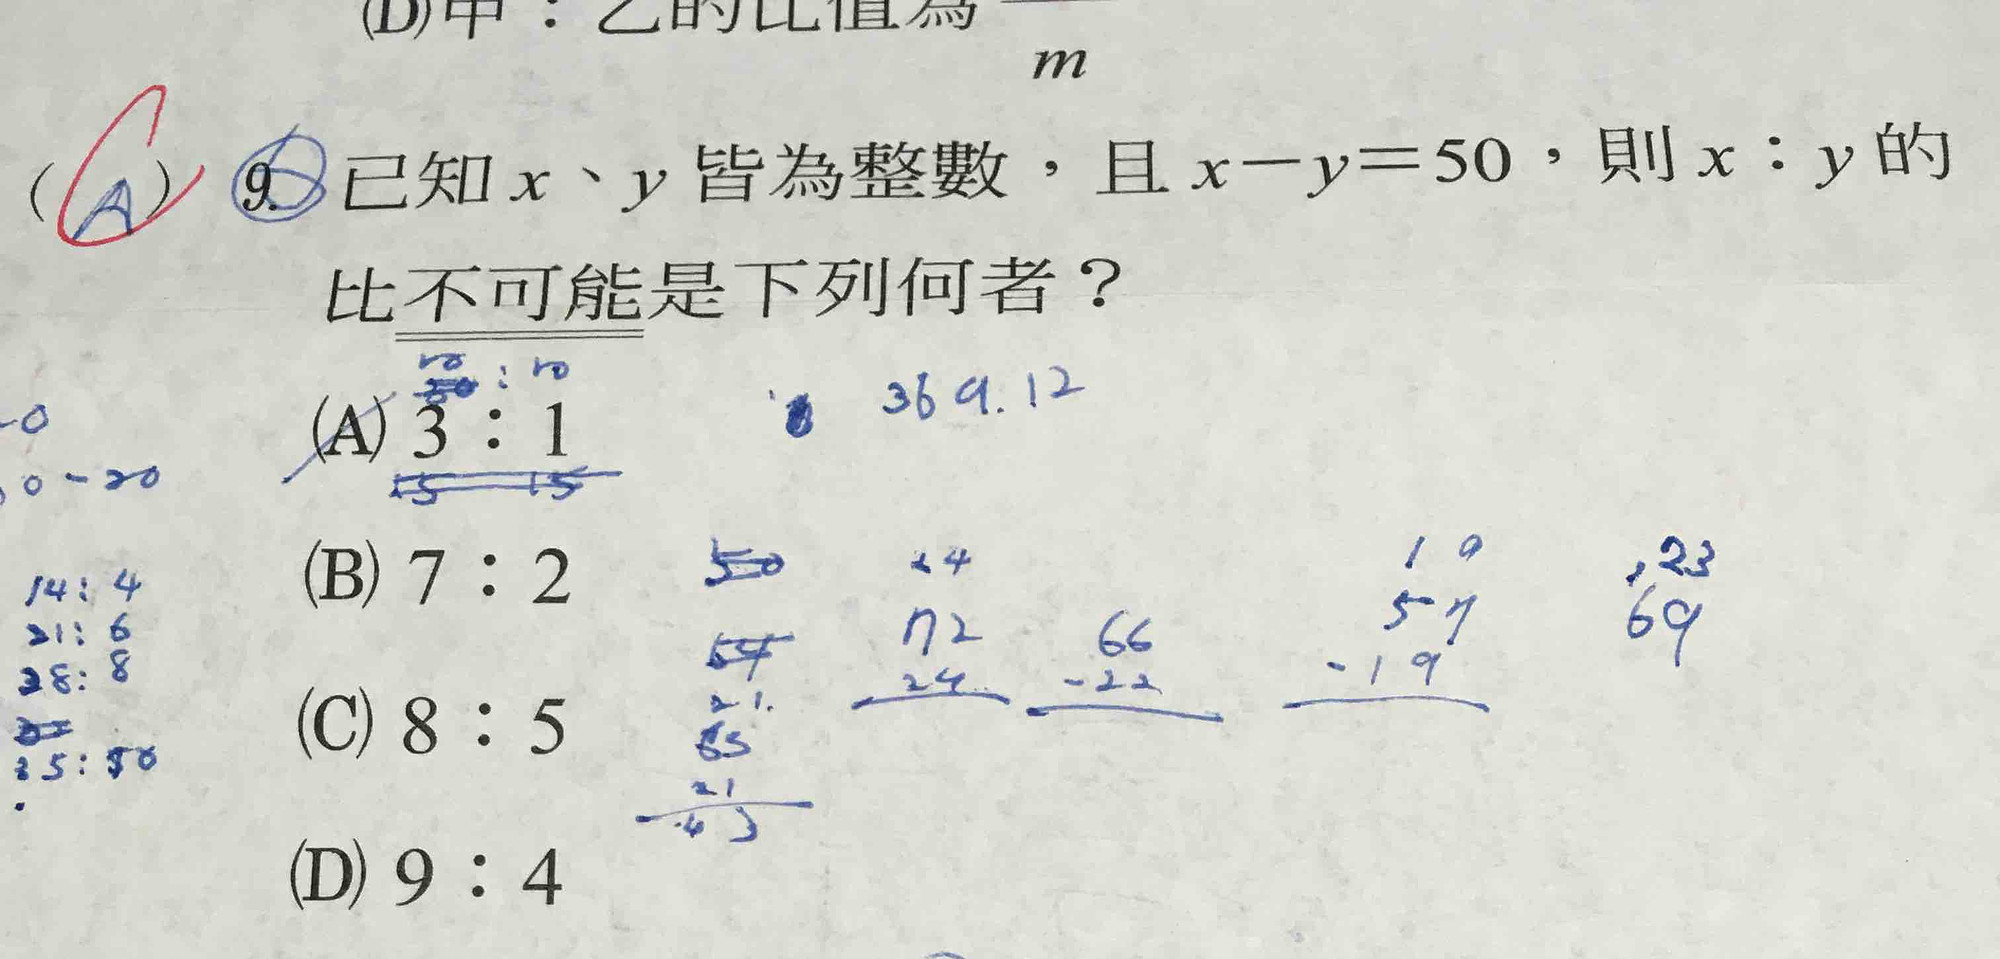 (D)甲：乙的比值為
m
(A) 9. 已知 x、y 皆為整數，且 x－y＝50，則 x：y 的
比不可能是下列何者？
10
50 : 10
369.12
(A) 3：1
15 15
0-20
(B) 7：2
50 24 19 23
14: 4
57 69
21: 6
72 66
28: 8
24 -22 -19
21.
(C) 8：5
65
35: 10
21
43
(D) 9：4